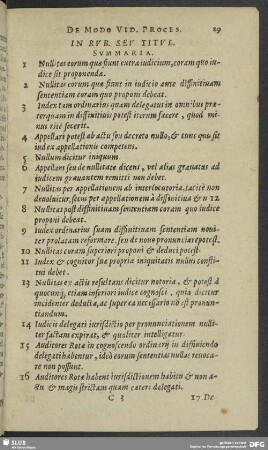 DE MODO VID. PROCES. 19
IN RVB. SEV TITVL.
SVMMARIA.
1 Nullitas eorum quæ fiunt extra iudicium, coram quo iudice sit proponenda.
2 Nullitas eorum quæ fiunt in iudicio ante diffinitiuam
sententiam coram quo proponi debeat.
3 Index tam ordinarius quam delegatus in omnibus præ
terquam in diffinitiuis potest iterum facere, quod mi
nus ritè fecerit.
4 Appellari potest ab actu seu decreto nullo, & tunc quis sit
iudex appellationis competens.
5 Nullum dicitur iniquum
6 Appellans seu de nullitate dicens, vel alias grauatus ad
iudicem grauantem remitti non debet.
7 Nullitas per appellationem ab interlocutoria, tacitè non
deuoluitur, secus per appellationem à diffinitiua & n 12
8 Nullitas post diffinitiuam sententiam coram quo iudice
proponi debeat.
9 Index ordinarius suam diffinitiuam sententiam nouiter prolatam reformare, seu de nouo pronunciare potest.
10 Nullitas coram superiori proponi & deduci potest.
11 Iudex & cognitor suæ propria iniquitatis nullus constitui debet.
13 Nullitas ex actis resultans dicitur notoria, & potest à
quocunq; etiam inferiori iudice cognosci, quia dicitur
incidenter deducta, ac super ea necessariò nõ est pronuntiandum.
14 Iudicis delegati iurisdictio per pronunciationem nulliter factam expirat, & qualiter intelligatur.
15 Auditores Rotæ in cognoscendo ordinarij in diffiniendo
delegati habentur, ideò eorum sententias nullas reuocare non possunt.
16 Auditores Rotæ habent iurisdictionem habitu & non a-
ctu & magis strictam quam cæteri delegati.
C 3 17 De
SLUB
DFG